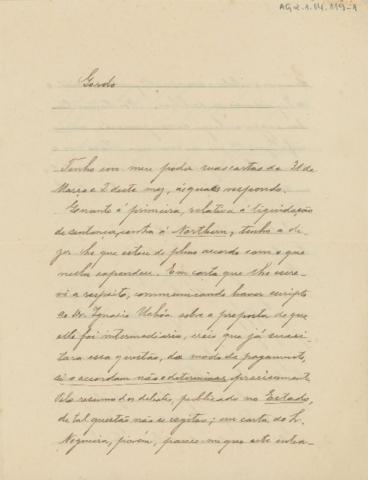 AG 2.1.14.119-1
Gordo
Tenho em meu poder suas cartas de 31 de
Março e 2 deste mez, ás quaes respondo.
á primeira, relativa á liquidação
de sentença contra a Northern, tenho a di-
zer-lhe que estou de pleno accordo com o que
nella expendeu. Em carta que lhe escre-
vi a respeito, communicando haver escripto
ao Dr. Ignacio Uchôa sobre a proposta de que
elle foi intermediario, creio que já susci-
tara essa questão, do modo de pagamento,
si o accordam não o determinar precisamente.
Pelo resumo dos debates, publicado no Estado,
de tal questão não se cogitou; em carta do Dr.
Nogueira, porém, pareceu-me que este